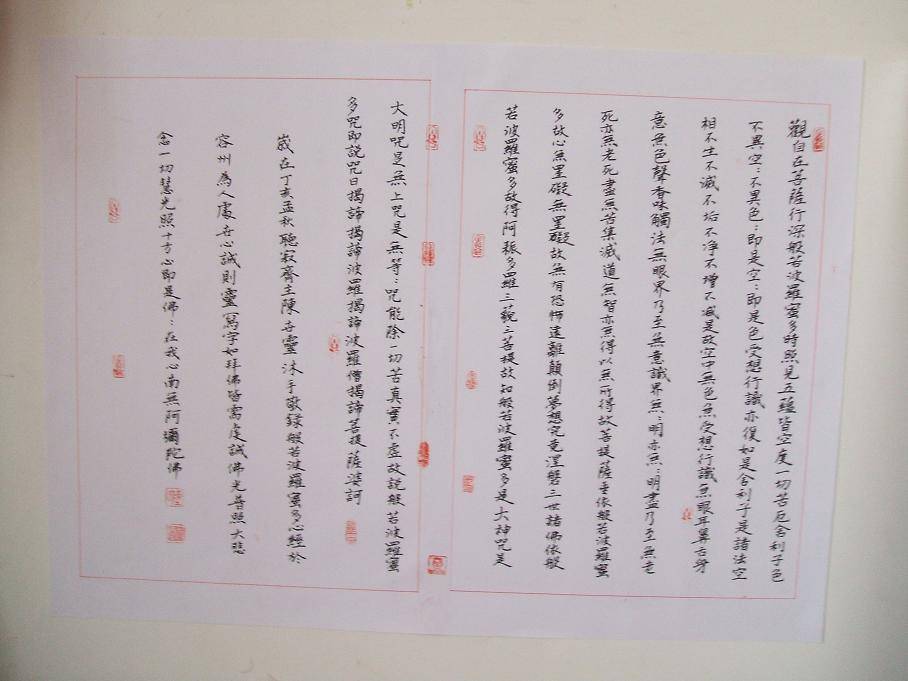 觀自在菩薩行深般若波羅蜜多時照見五蘊皆空度一切苦厄舍利子色
不異空：不異色：即是空：即是色受想行識亦復如是舍利子是諸法空
相不生不滅不垢不淨不增不减是故空中無色無受想行識無眼耳鼻舌身
意無色聲香味觸法無眼界乃至無意識界無：明亦無：明盡乃至無老
死亦無老死盡無苦集滅道無智亦無得以無所得故菩提薩埵依般若波羅蜜
多故心無罣礙無罣礙故無有恐怖遠離顛倒夢想究竟涅磐三世諸佛依般
若波羅蜜多故得阿耨多羅三藐三菩提故知般若波羅蜜多是大神咒是
大明咒是無上咒是無等：咒能除一切苦真實不虛故說般若波羅蜜
多咒即說咒曰揭諦揭諦波羅揭諦波羅僧揭諦菩提薩婆訶
歲在丁亥孟秋聽寂齋主陳 靈沐手敬録般若波羅蜜多心經於
容州為人處 心誠則靈寫字如拜佛皆需虔誠佛光普照大慈
念一切慧光照十方心即是佛：在我心南無阿彌陀佛